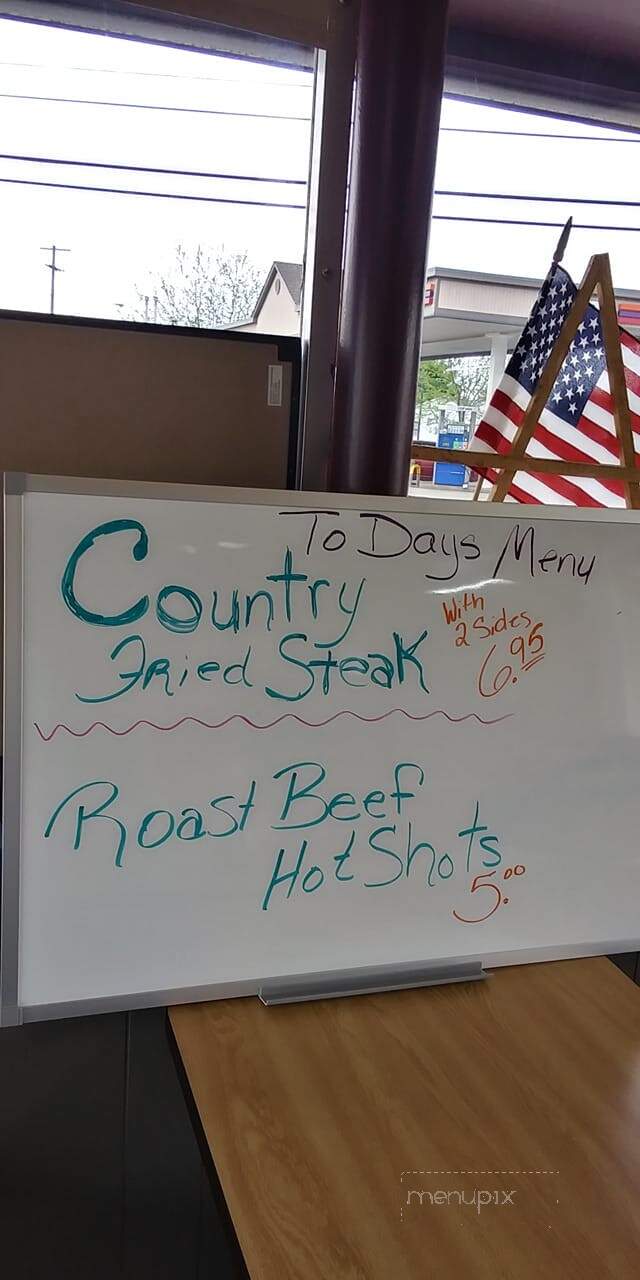 To Days Menu
Country
Fried Steak
With
2 Sides
6.95
Roast Beef
Hot Shots
5.00
menupix